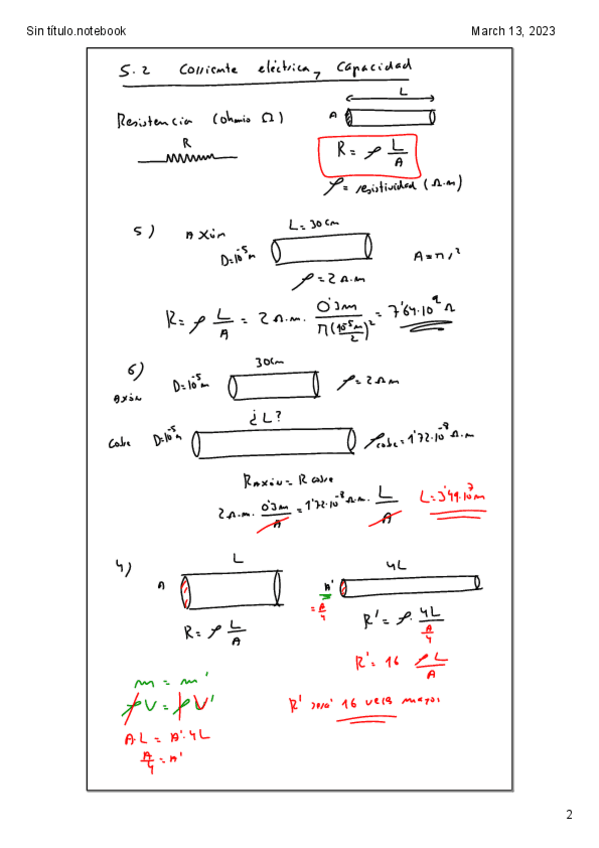 Sin título.notebook
March 13, 2023
5.2 Corriente eléctrica, Capacidad
Resistencia (ohmio Ω)
R
L
A
R = ρ L/A
ρ = resistividad (Ω.m)
5)
Axón
D=10⁻⁵m
L = 30cm
ρ = 2 Ω.m
A = π r²
R = ρ L/A = 2 Ω.m. 0'3m/π(10⁻⁵m/2)² = 7'64.10⁹ Ω
6)
Axón
D=10⁻⁵m
30cm
ρ = 2 Ω m
¿L?
Cobre
D=10⁻⁵m
ρcobre = 1'72.10⁻⁸ Ω.m
R axón = R cobre
2 Ω.m. 0'3m/A = 1'72.10⁻⁸ Ω.m. L/A
L = 3'49.10⁷m
4)
L
A
R = ρ L/A
4L
A'
= A/4
R' = ρ. 4L/(A/4)
R' = 16 ρL/A
R' será 16 veces mayor
m = m'
ρV = ρV'
A.L = A'.4L
A/4 = A'
2